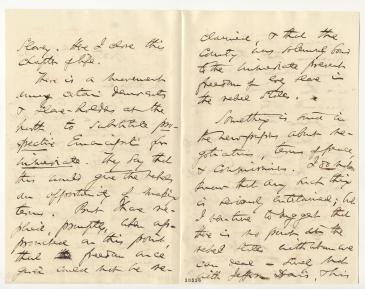 slavery. Here I close this
chapter of life.
There is a movement
among certain Democrats
& Slave-holders at the
north to substitute pro-
spective Emancipatn for
immediate. They say that
this would give the rebels
an opportunity of making
terms. But I have re-
plied, promptly, when ap-
proached on this point,
that the freedom once
given could not be re-
claimed, & that the
County was solemnly bound
to the immediate present
freedom of every slave in
the rebel States.
Something is said in
the newspapers about ne-
gotiations, terms of peace,
& Commissioners. I do not
know that any such thing
is seriously entertained; but
I continue to suggest that
there is no person in the
rebel States with whom we
can deal – surely not
with Jefferson Davis. This
20226